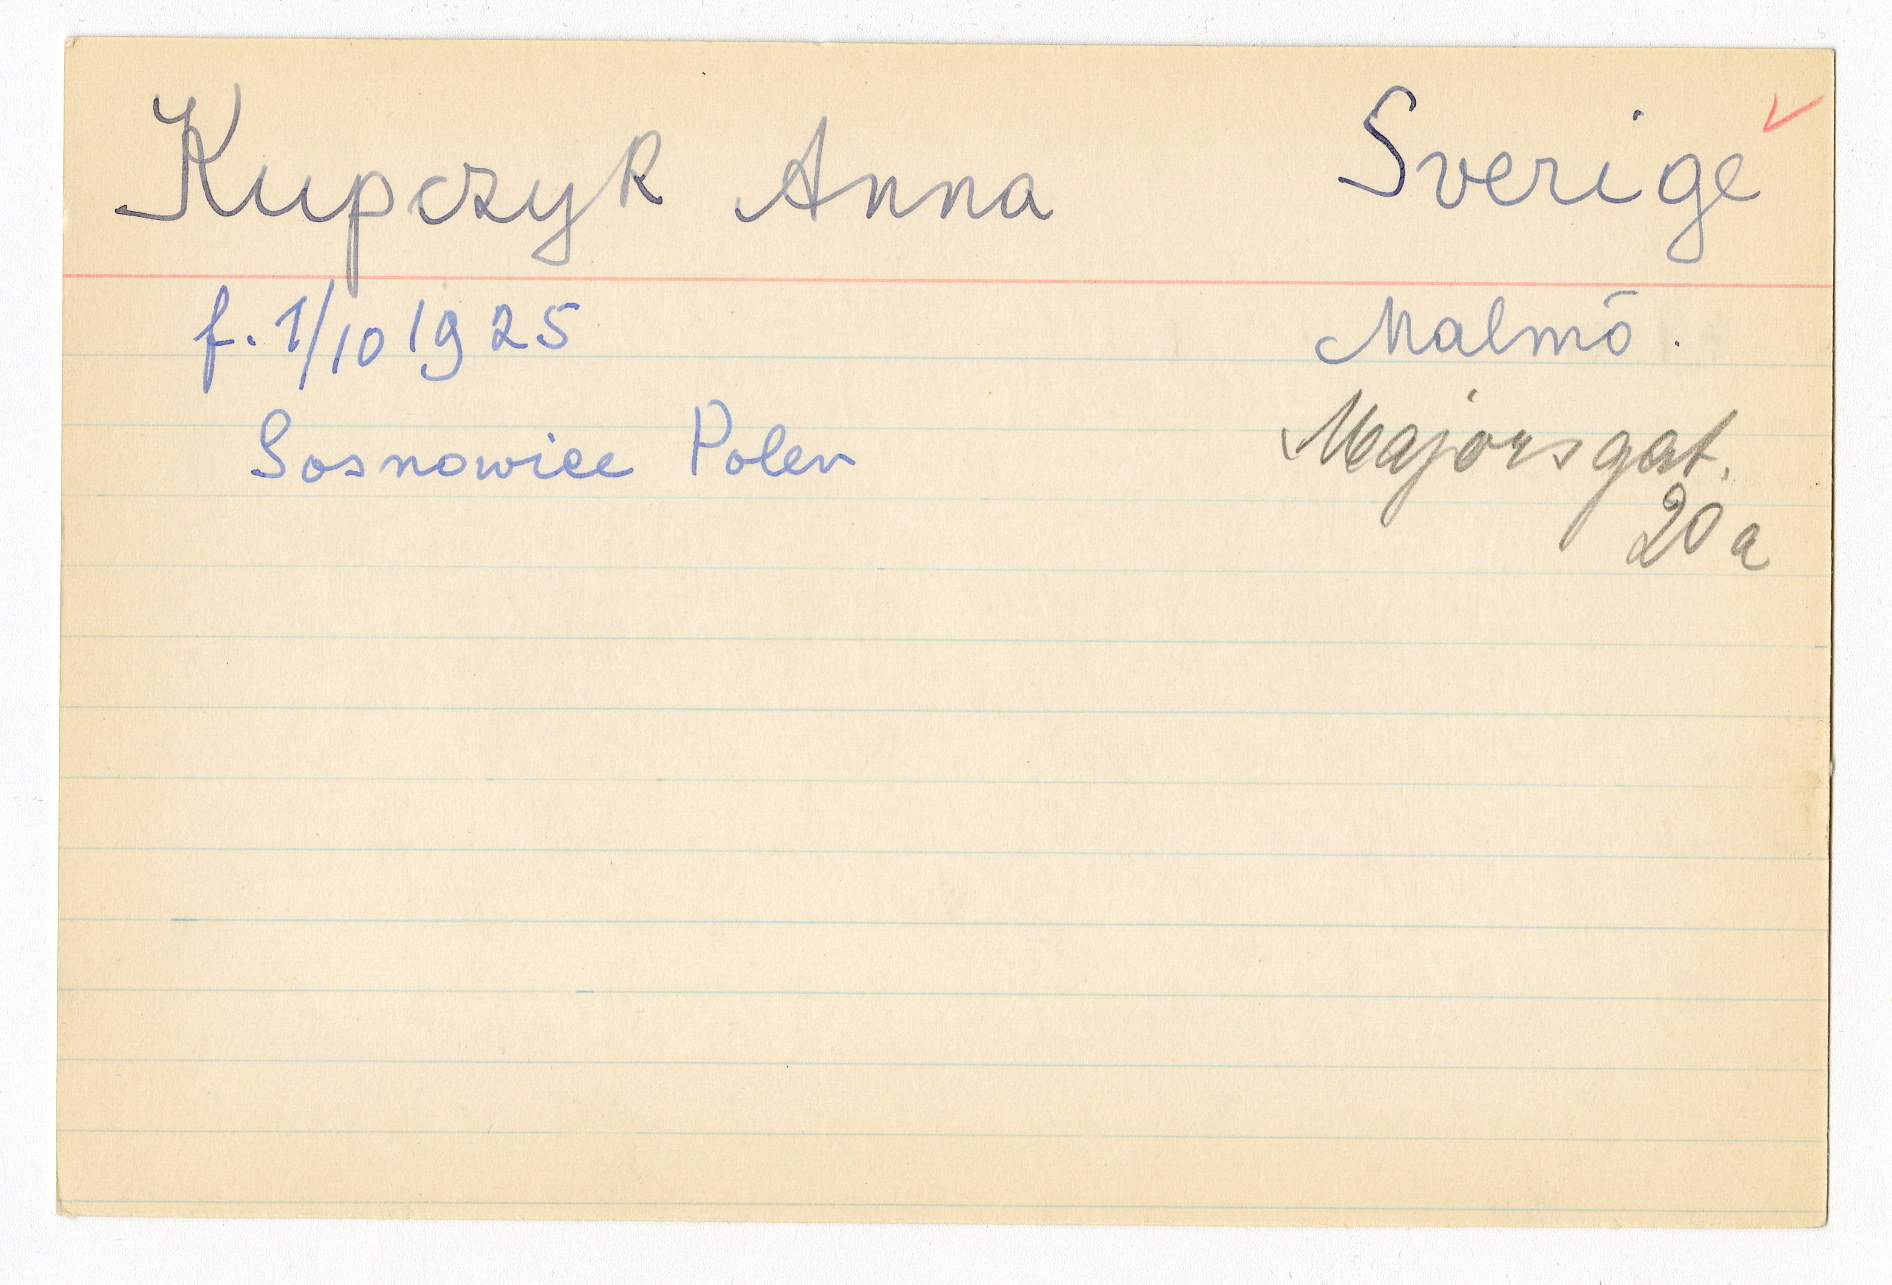 Kupczyk Anna Sverige
f. 1/10 1925 Malmö.
Sosnowice Polen Majorsgat.
20 a